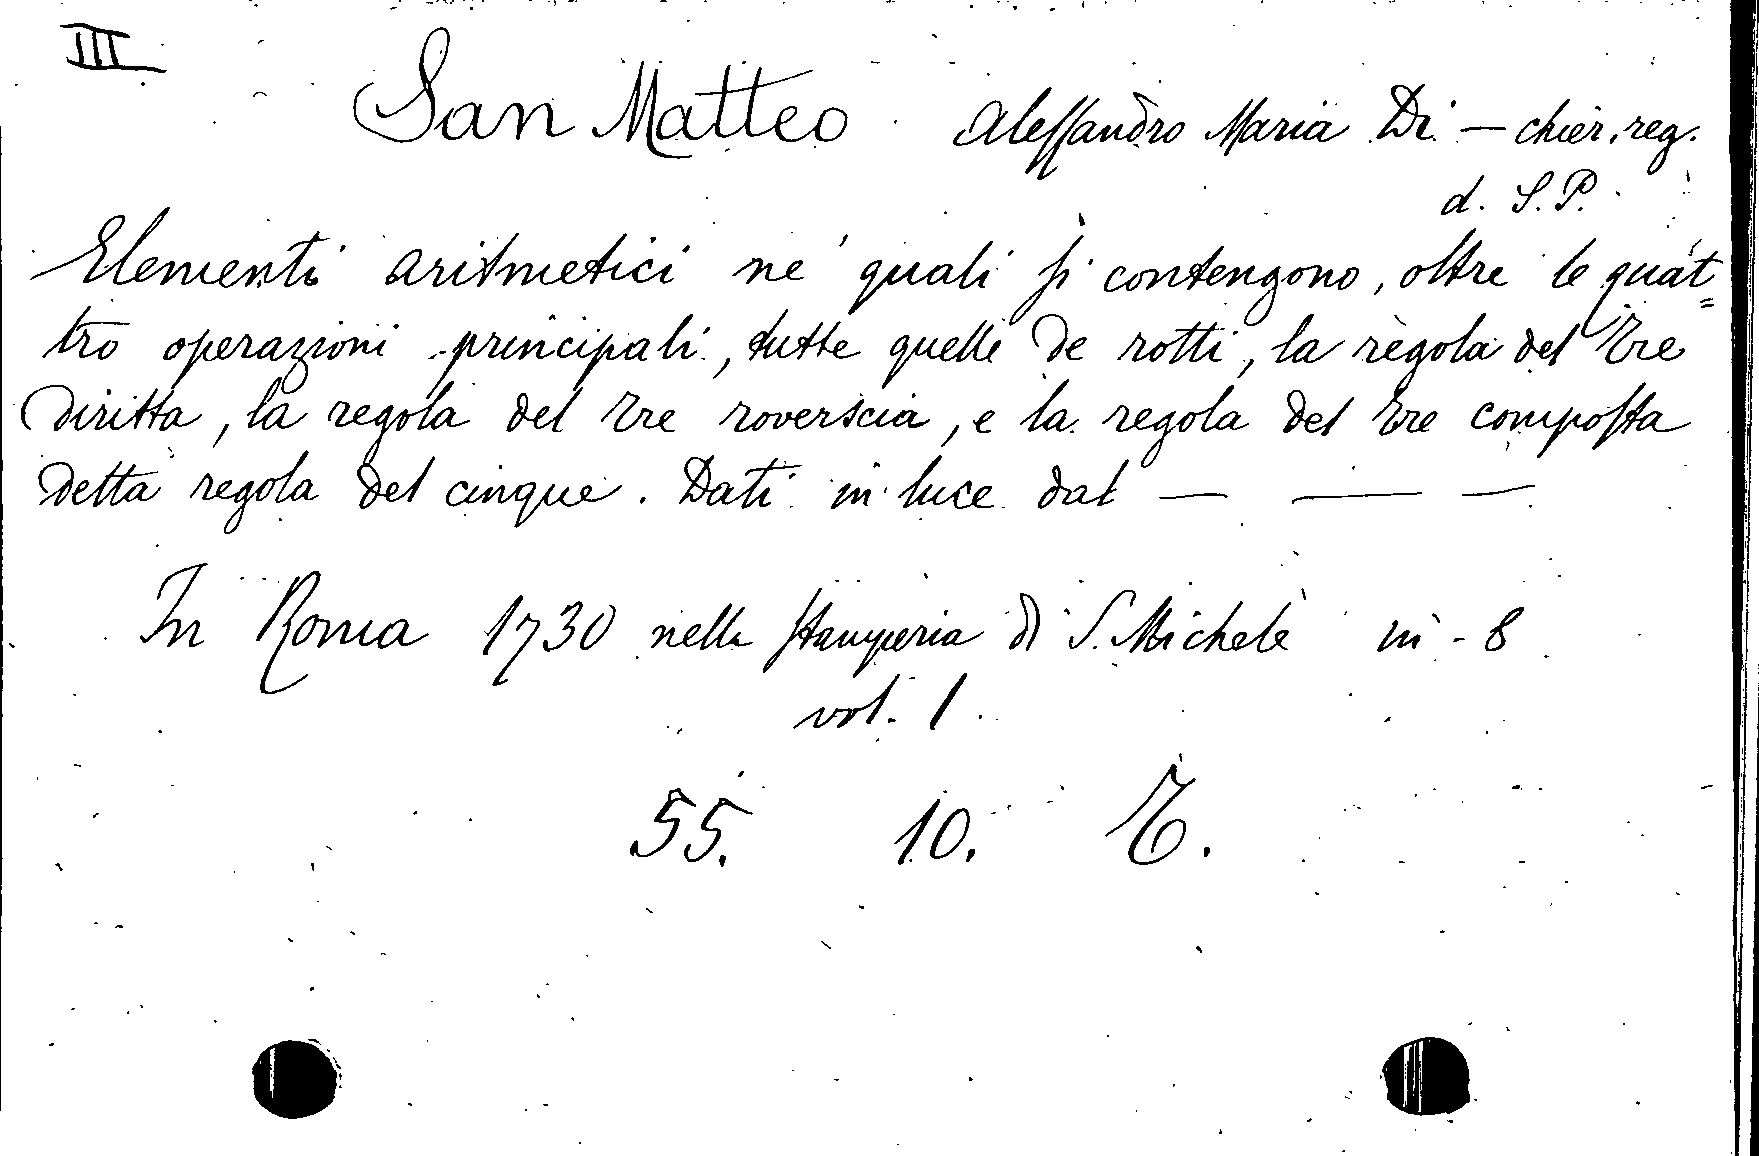 III
San Matteo Alessandro Maria Di — chier. reg.
d. S. P.
Elementi aritmetici ne' quali si contengono, oltre le quat=
tro operazioni principali, tutte quelle de rotti, la regola del tre
diritta, la regola del tre roverscia, e la regola del tre composta
detta regola del cinque. Dati in luce dal — — —
In Roma 1730 nella stamperia di S. Michele in - 8
vol. 1
55. 10. E.